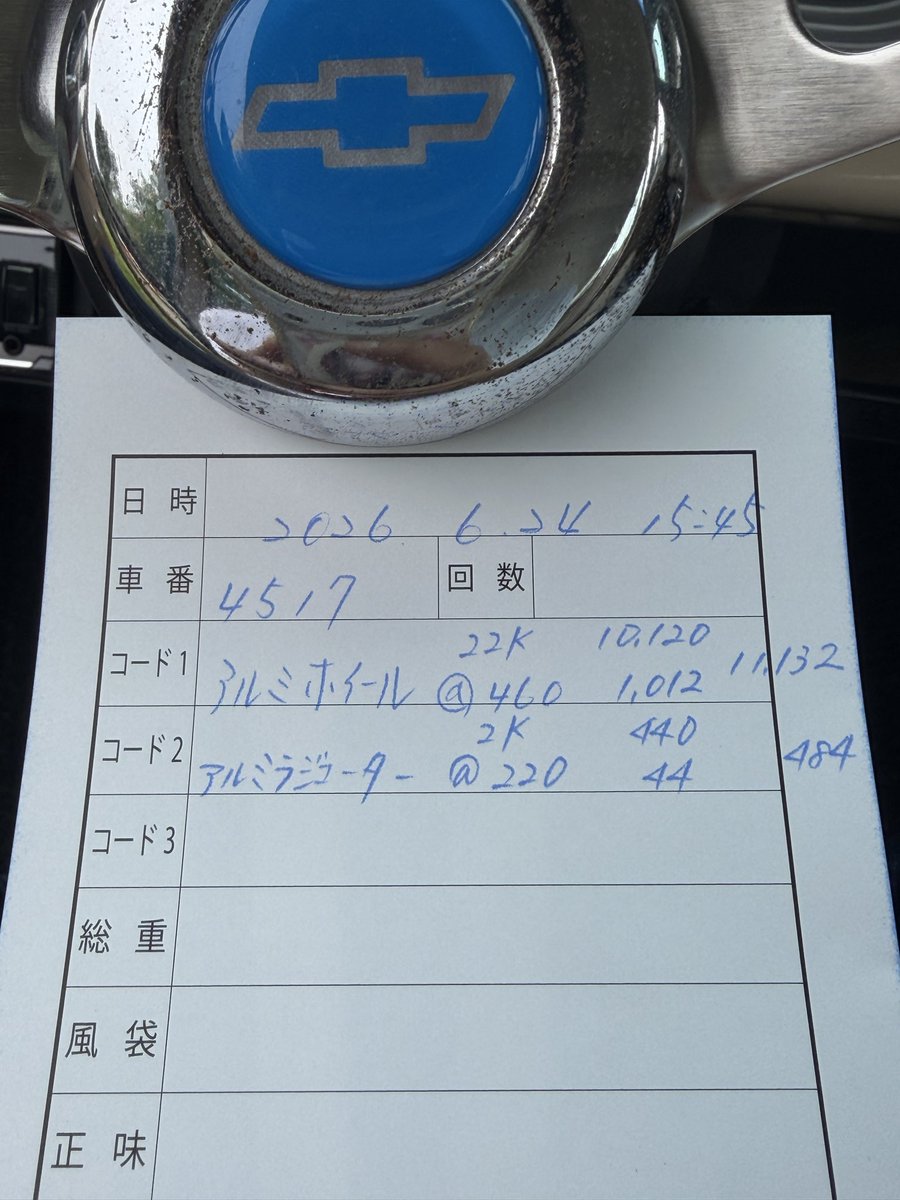 日時 2026 6.24 15:45
車番 4517 回数
22K 10,120
コード1 アルミホイール @460 1,012 11,132
2K 440
コード2 アルミラジエーター @220 44 484
コード3
総重
風袋
正味